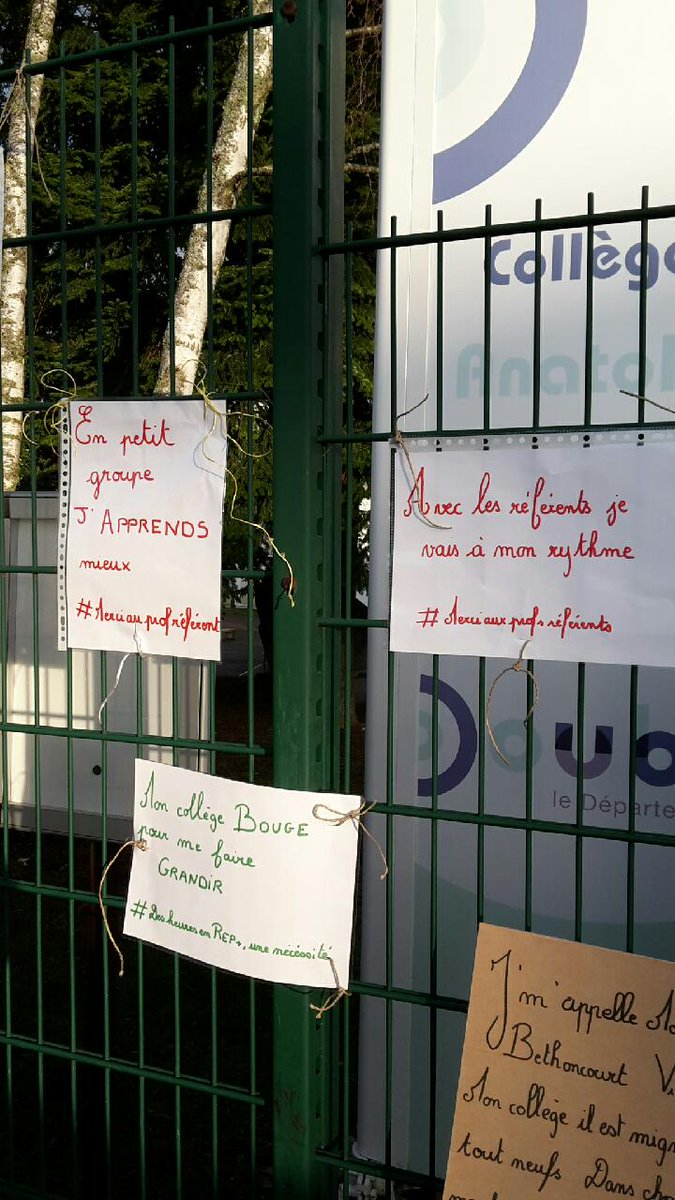 Collèg
Anatol
En petit
groupe
J'APPRENDS
mieux
#Merci au prof référent
Avec les référents je
vais à mon rythme
# Merci aux profs référents
Doub
le Départe
Mon collège BOUGE
pour me faire
GRANDIR
#Des heures en REP+, une nécéssité
J'm'appelle
Bethoncourt
Mon collège il est mign
tout neufs Dans